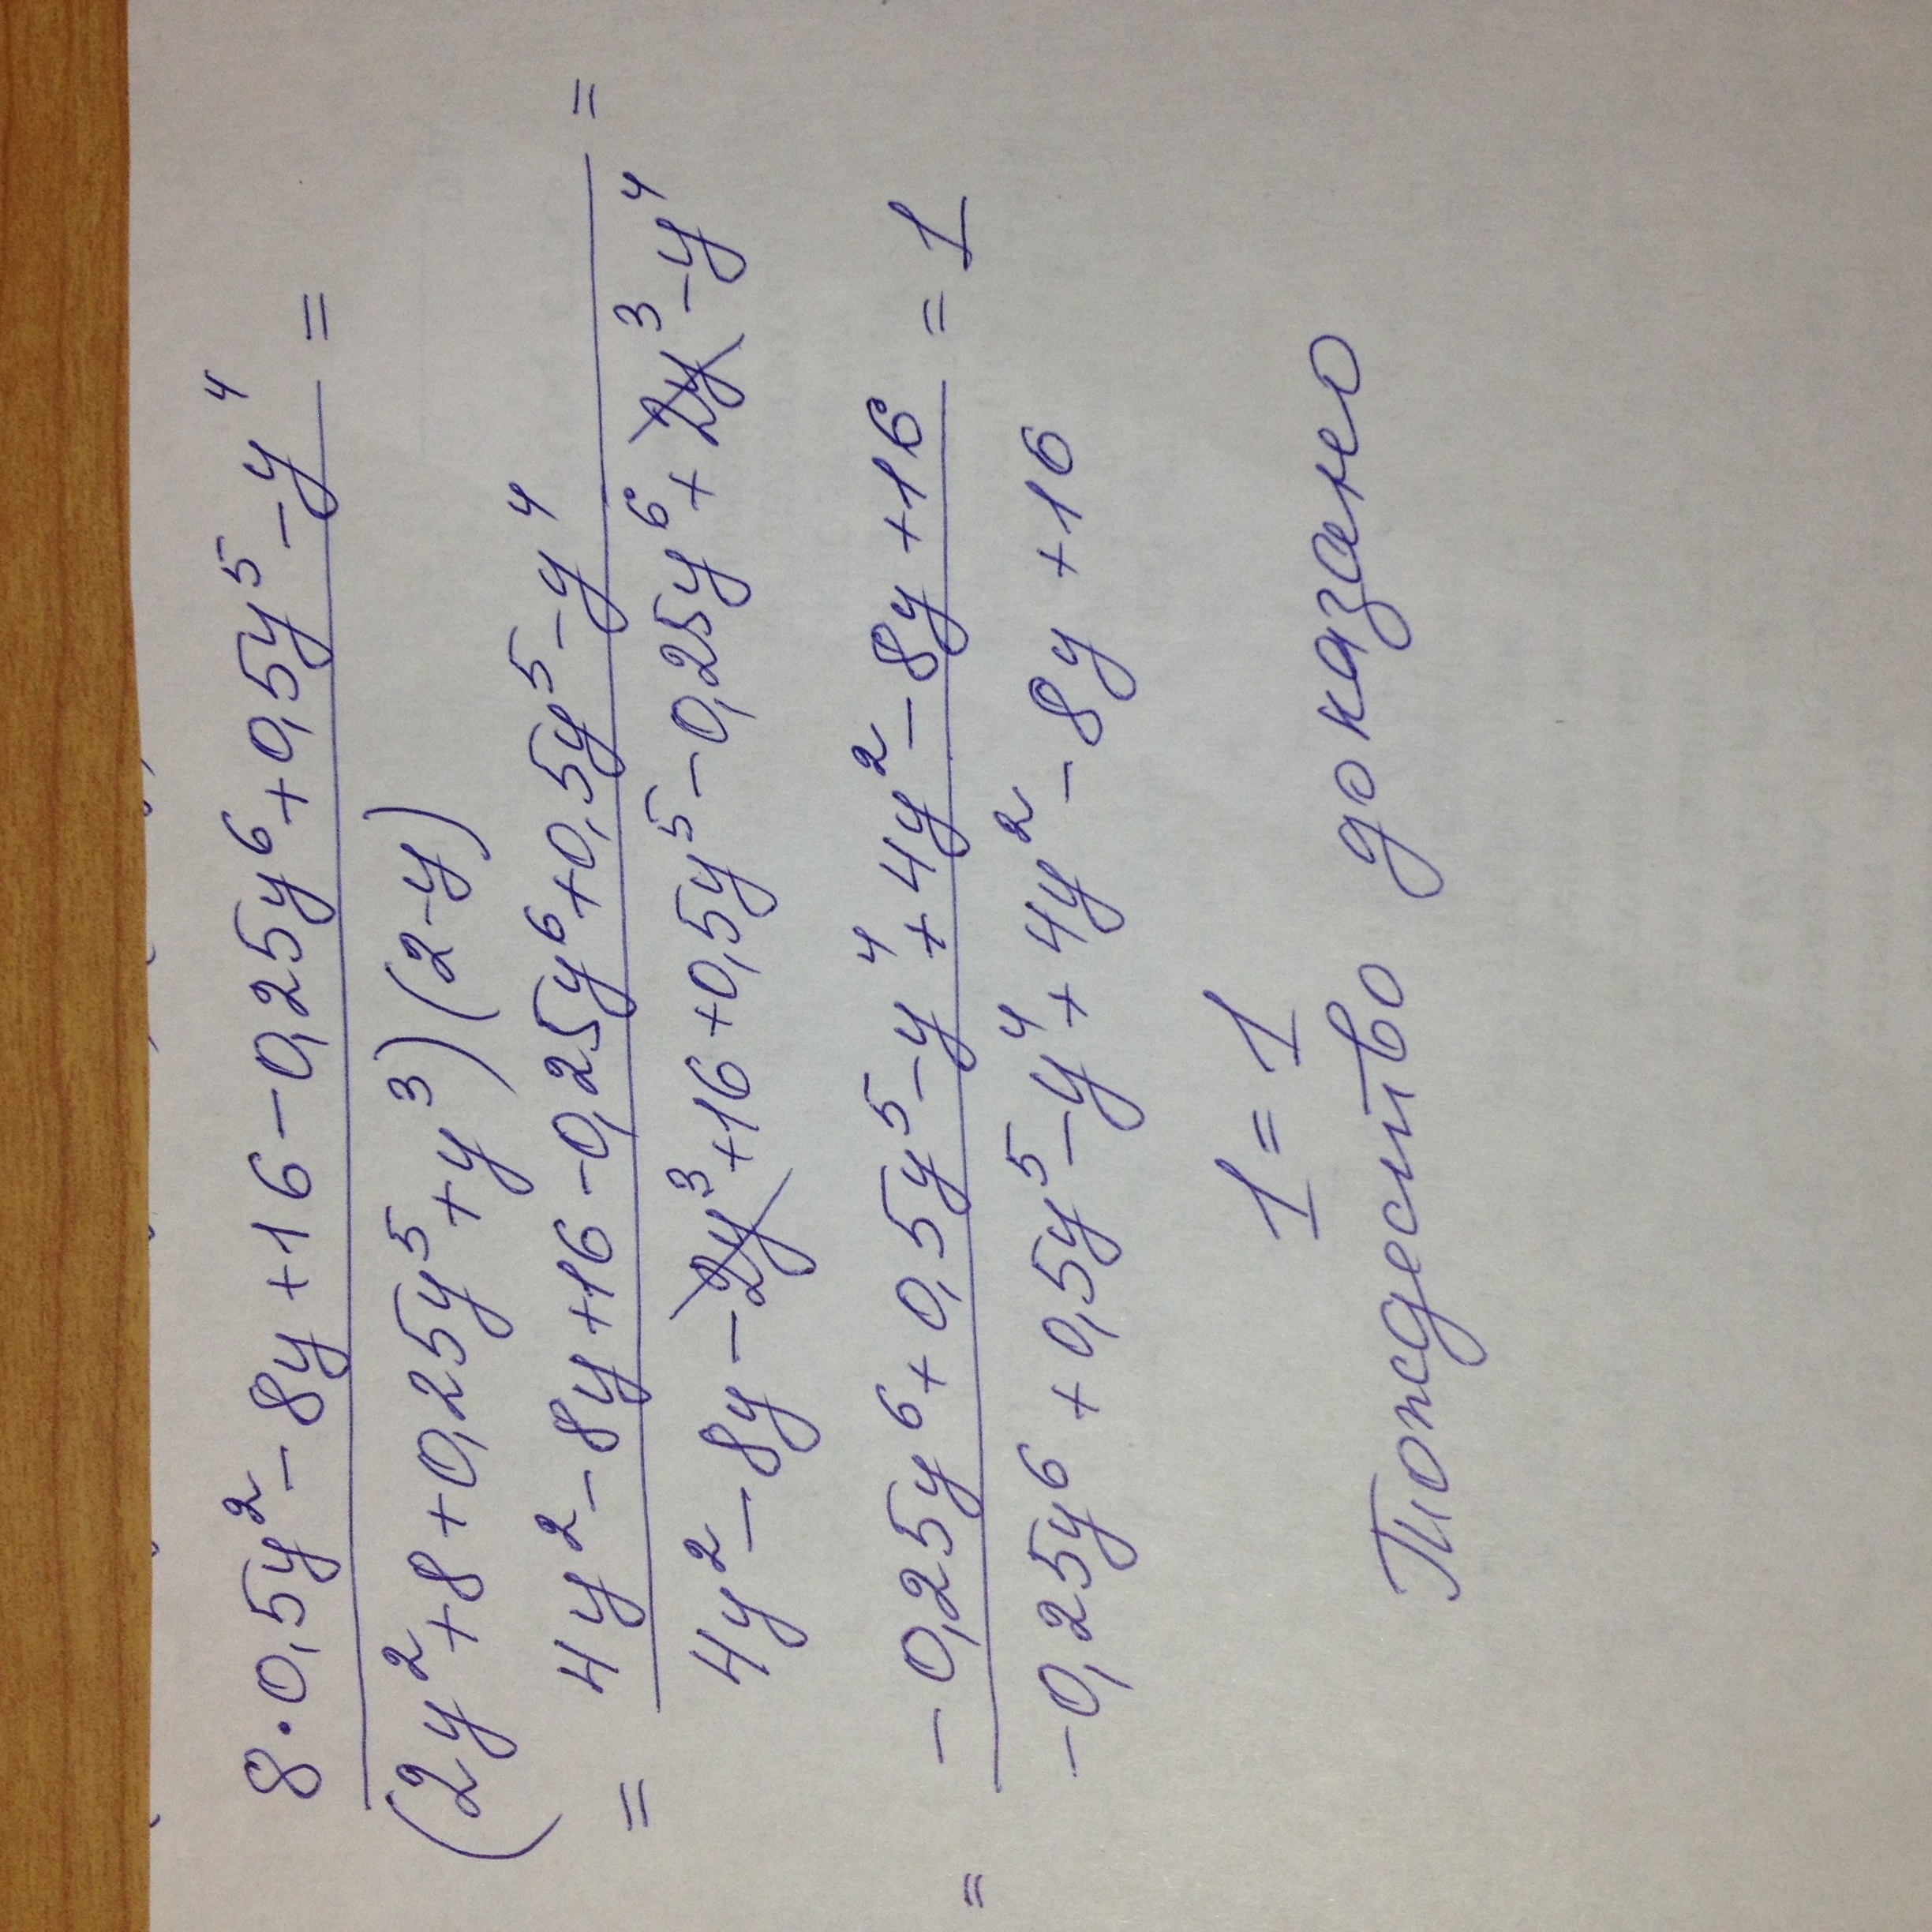 8·0,5y²-8y+16-0,25y⁶+0,5y⁵-y⁴ =
(2y²+8+0,25y⁵+y³)(2-y)
= 4y²-8y+16-0,25y⁶+0,5y⁵-y⁴ =
4y²-8y-2y³+16+0,5y⁵-0,25y⁶+2y³-y⁴
= -0,25y⁶+0,5y⁵-y⁴+4y²-8y+16 = 1
-0,25y⁶+0,5y⁵-y⁴+4y²-8y+16
1=1
Тождество доказано